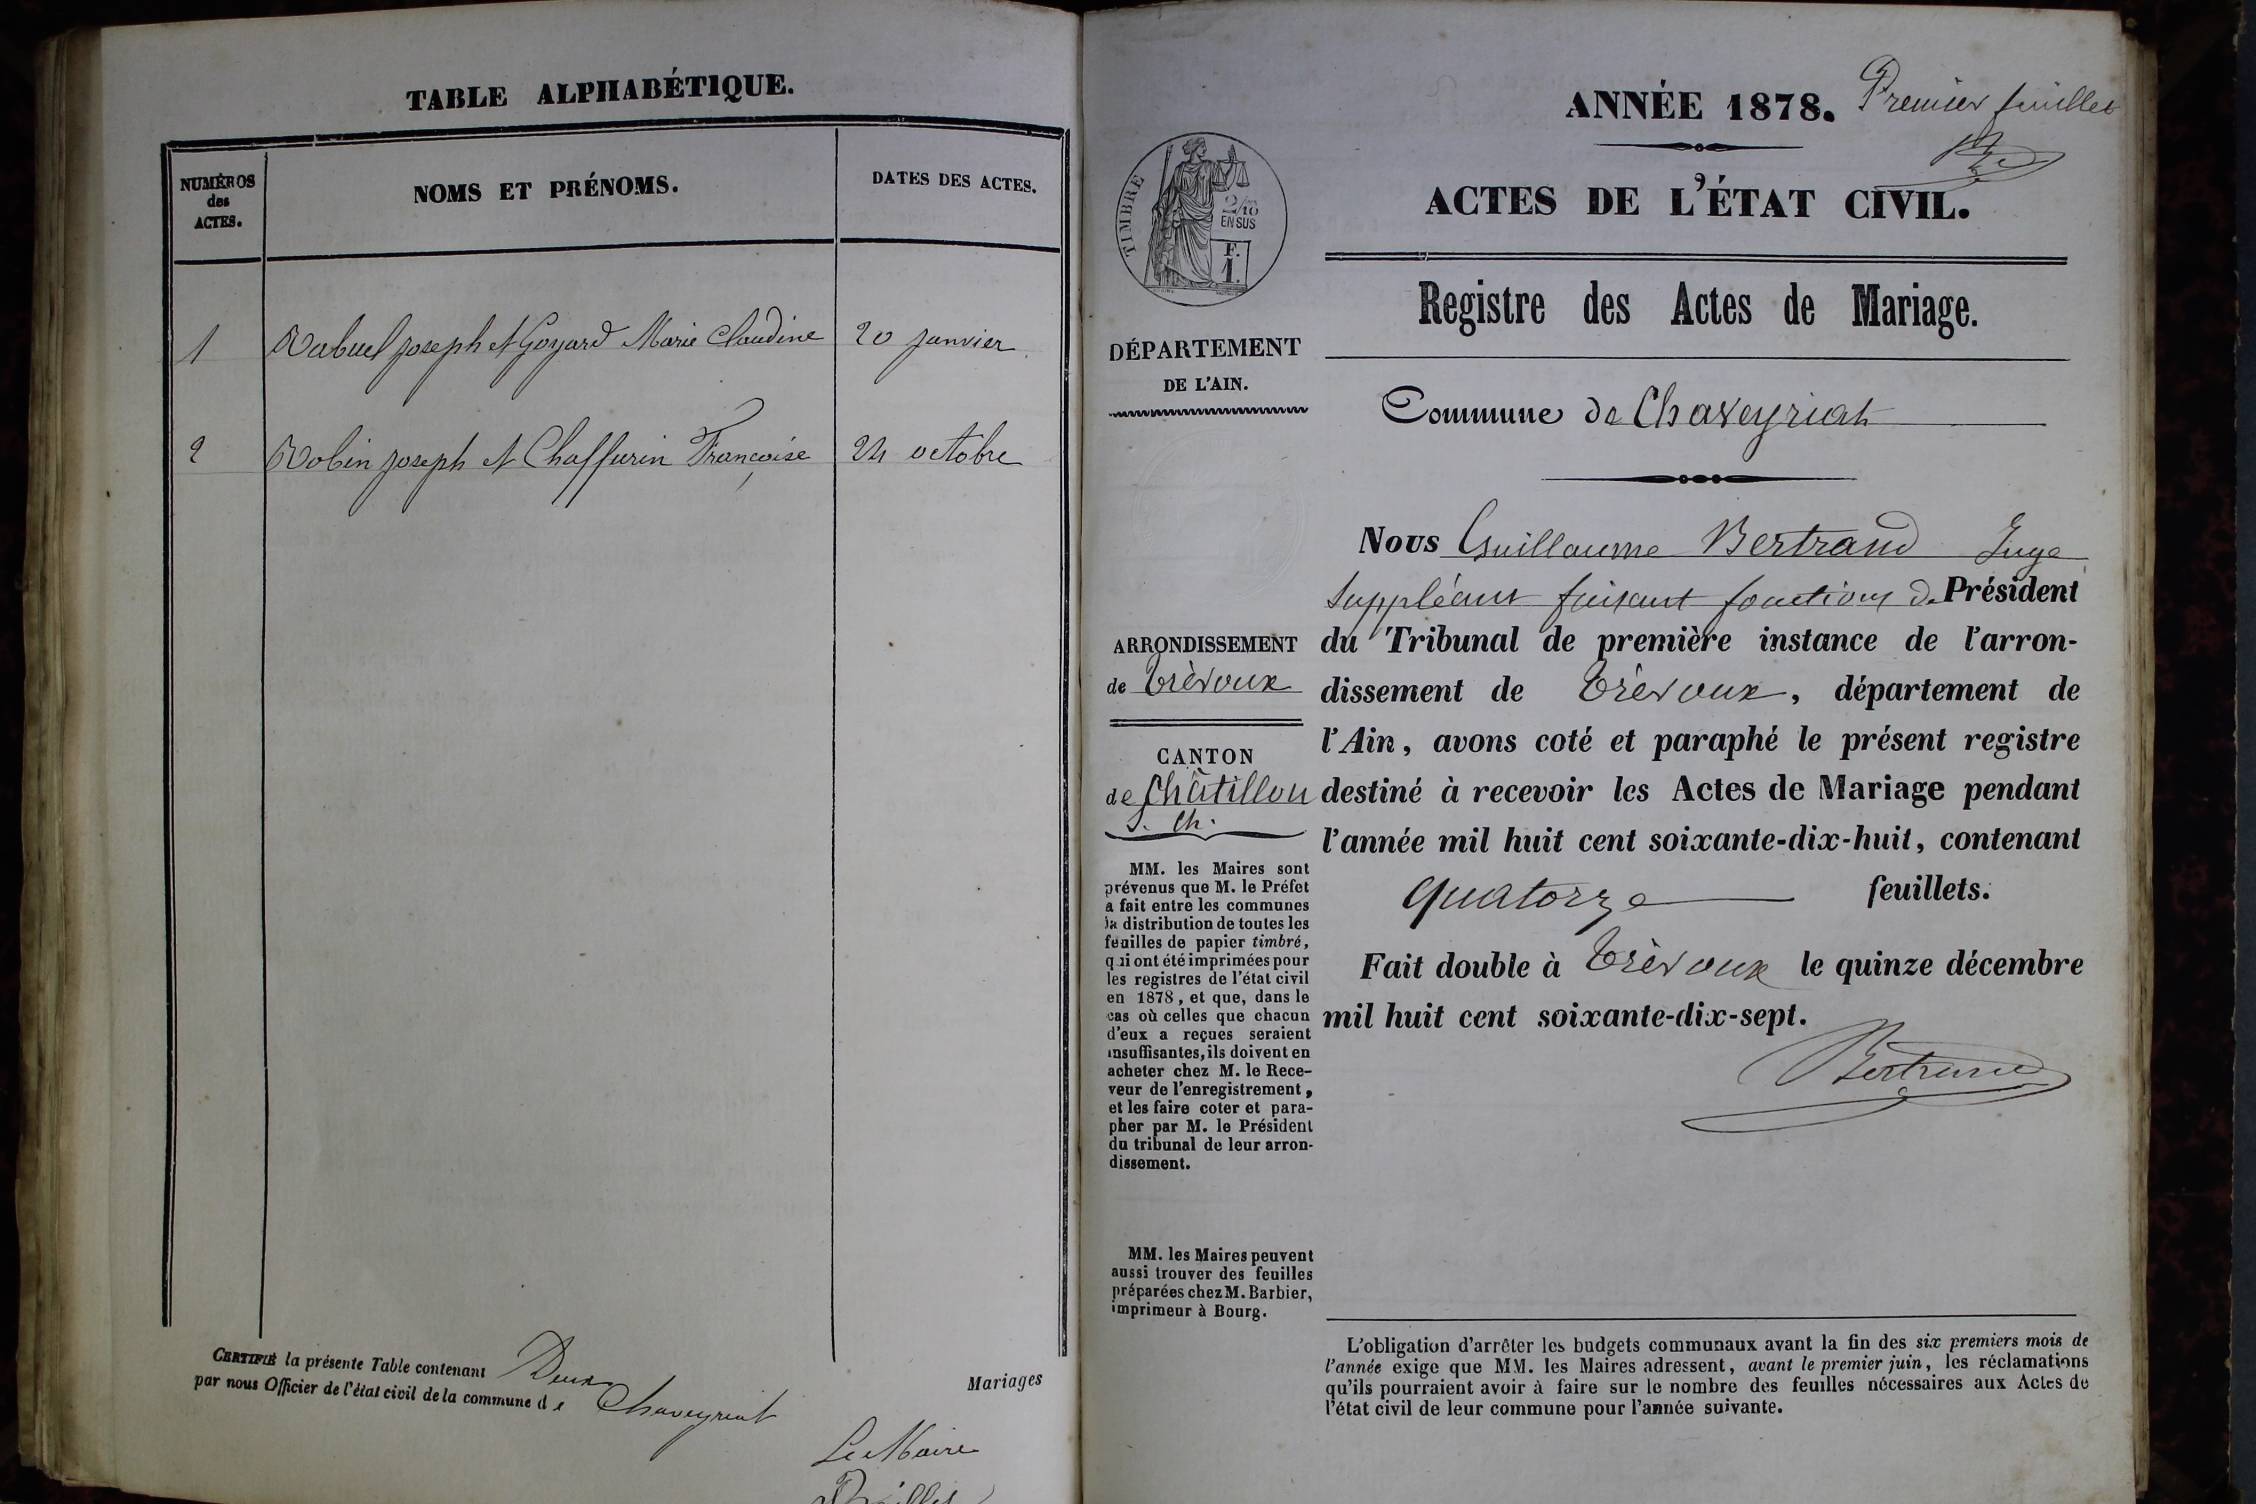 TABLE ALPHABÉTIQUE.
NUMÉROS
des
ACTES.
NOMS ET PRÉNOMS.
DATES DES ACTES.
1 Rabuel joseph et Goyard Marie Claudine 20 janvier
2 Robin joseph et Chaffurin Françoise 24 octobre
CERTIFIÉ la présente Table contenant Deux Mariages
par nous Officier de l'état civil de la commune de Chaveyriat
Le Maire
ANNÉE 1878.
Premier feuillet
ACTES DE L'ÉTAT CIVIL.
TIMBRE
2/10
EN SUS
F.
1.
Registre des Actes de Mariage.
DÉPARTEMENT
DE L'AIN.
Commune de Chaveyriat
ARRONDISSEMENT
de Trévoux
CANTON
de Châtillon
s. Ch.
MM. les Maires sont
prévenus que M. le Préfet
a fait entre les communes
la distribution de toutes les
feuilles de papier timbré,
qui ont été imprimées pour
les registres de l'état civil
en 1878, et que, dans le
cas où celles que chacun
d'eux a reçues seraient
insuffisantes, ils doivent en
acheter chez M. le Rece-
veur de l'enregistrement,
et les faire coter et para-
pher par M. le Président
du tribunal de leur arron-
dissement.
MM. les Maires peuvent
aussi trouver des feuilles
préparées chez M. Barbier,
imprimeur à Bourg.
Nous Guillaume Bertrand Juge
Suppléant faisant fonctions de Président
du Tribunal de première instance de l'arron-
dissement de Trévoux, département de
l'Ain, avons coté et paraphé le présent registre
destiné à recevoir les Actes de Mariage pendant
l'année mil huit cent soixante-dix-huit, contenant
quatorze feuillets.
Fait double à Trévoux le quinze décembre
mil huit cent soixante-dix-sept.
Bertrand
L'obligation d'arrêter les budgets communaux avant la fin des six premiers mois de
l'année exige que MM. les Maires adressent, avant le premier juin, les réclamations
qu'ils pourraient avoir à faire sur le nombre des feuilles nécessaires aux Actes de
l'état civil de leur commune pour l'année suivante.